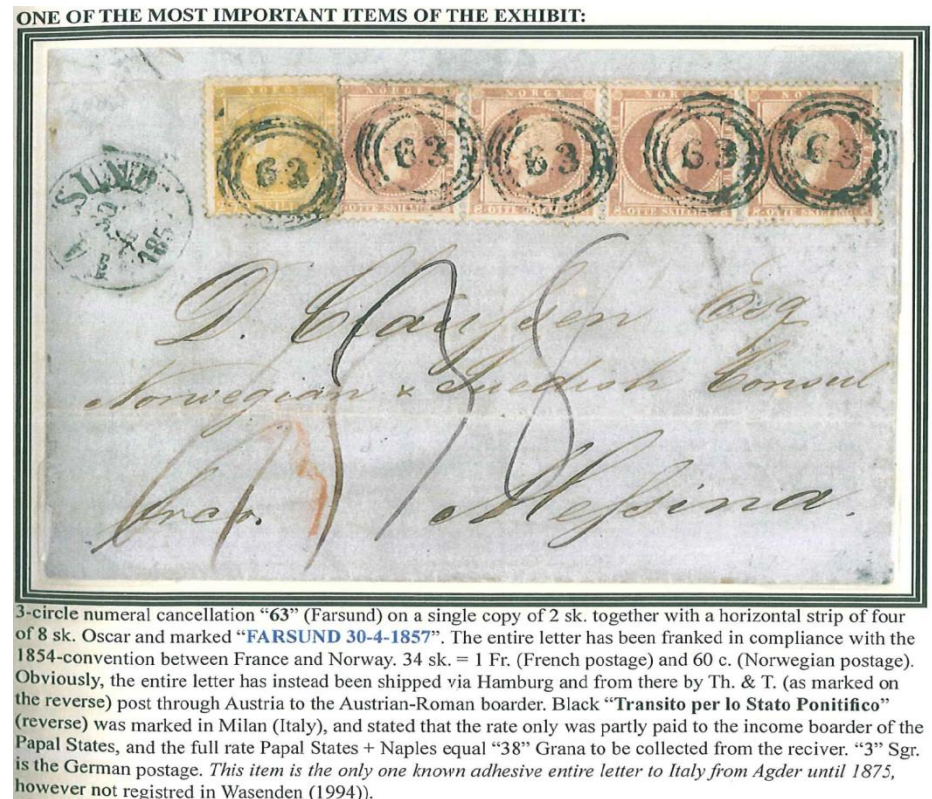 ONE OF THE MOST IMPORTANT ITEMS OF THE EXHIBIT:
NORGE NORGE NORGE NORGE NORGE
63 63 63 63 63
OTTE SKILLING OTTE SKILLING OTTE SKILLING OTTE SKILLING
SUND
D. Claussen Esq
Norwegian & Swedish Consul
frco. Messina.
38
3
3-circle numeral cancellation “63” (Farsund) on a single copy of 2 sk. together with a horizontal strip of four
of 8 sk. Oscar and marked “FARSUND 30-4-1857”. The entire letter has been franked in compliance with the
1854-convention between France and Norway. 34 sk. = 1 Fr. (French postage) and 60 c. (Norwegian postage).
Obviously, the entire letter has instead been shipped via Hamburg and from there by Th. & T. (as marked on
the reverse) post through Austria to the Austrian-Roman boarder. Black “Transito per lo Stato Ponitifico”
(reverse) was marked in Milan (Italy), and stated that the rate only was partly paid to the income boarder of the
Papal States, and the full rate Papal States + Naples equal “38” Grana to be collected from the reciver. “3” Sgr.
is the German postage. This item is the only one known adhesive entire letter to Italy from Agder until 1875,
however not registred in Wasenden (1994)).